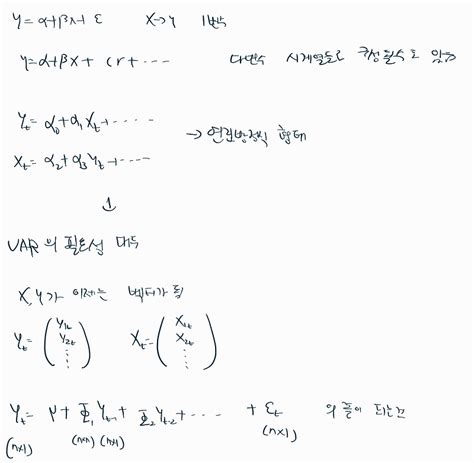 y = α+βx+ ε   x→y   1변수
y=α+βx+ cr+ ---   다변수 시계열들로 구성될수도 있음
Yt= α0+α1Xt+----
→ 연립방정식 형태
Xt= α2+α3Yt+----
↓
VAR의 필요성 대두
X,Y가 이제는 벡터가 됨
Yt= (Y1t Y2t ⋮)   Xt= (X1t X2t ⋮)
Yt= μ+ Φ1Yt-1+ Φ2Yt-2+--- + εt 의 꼴이 되는것
(n×1) (n×n) (n×1) (n×1)